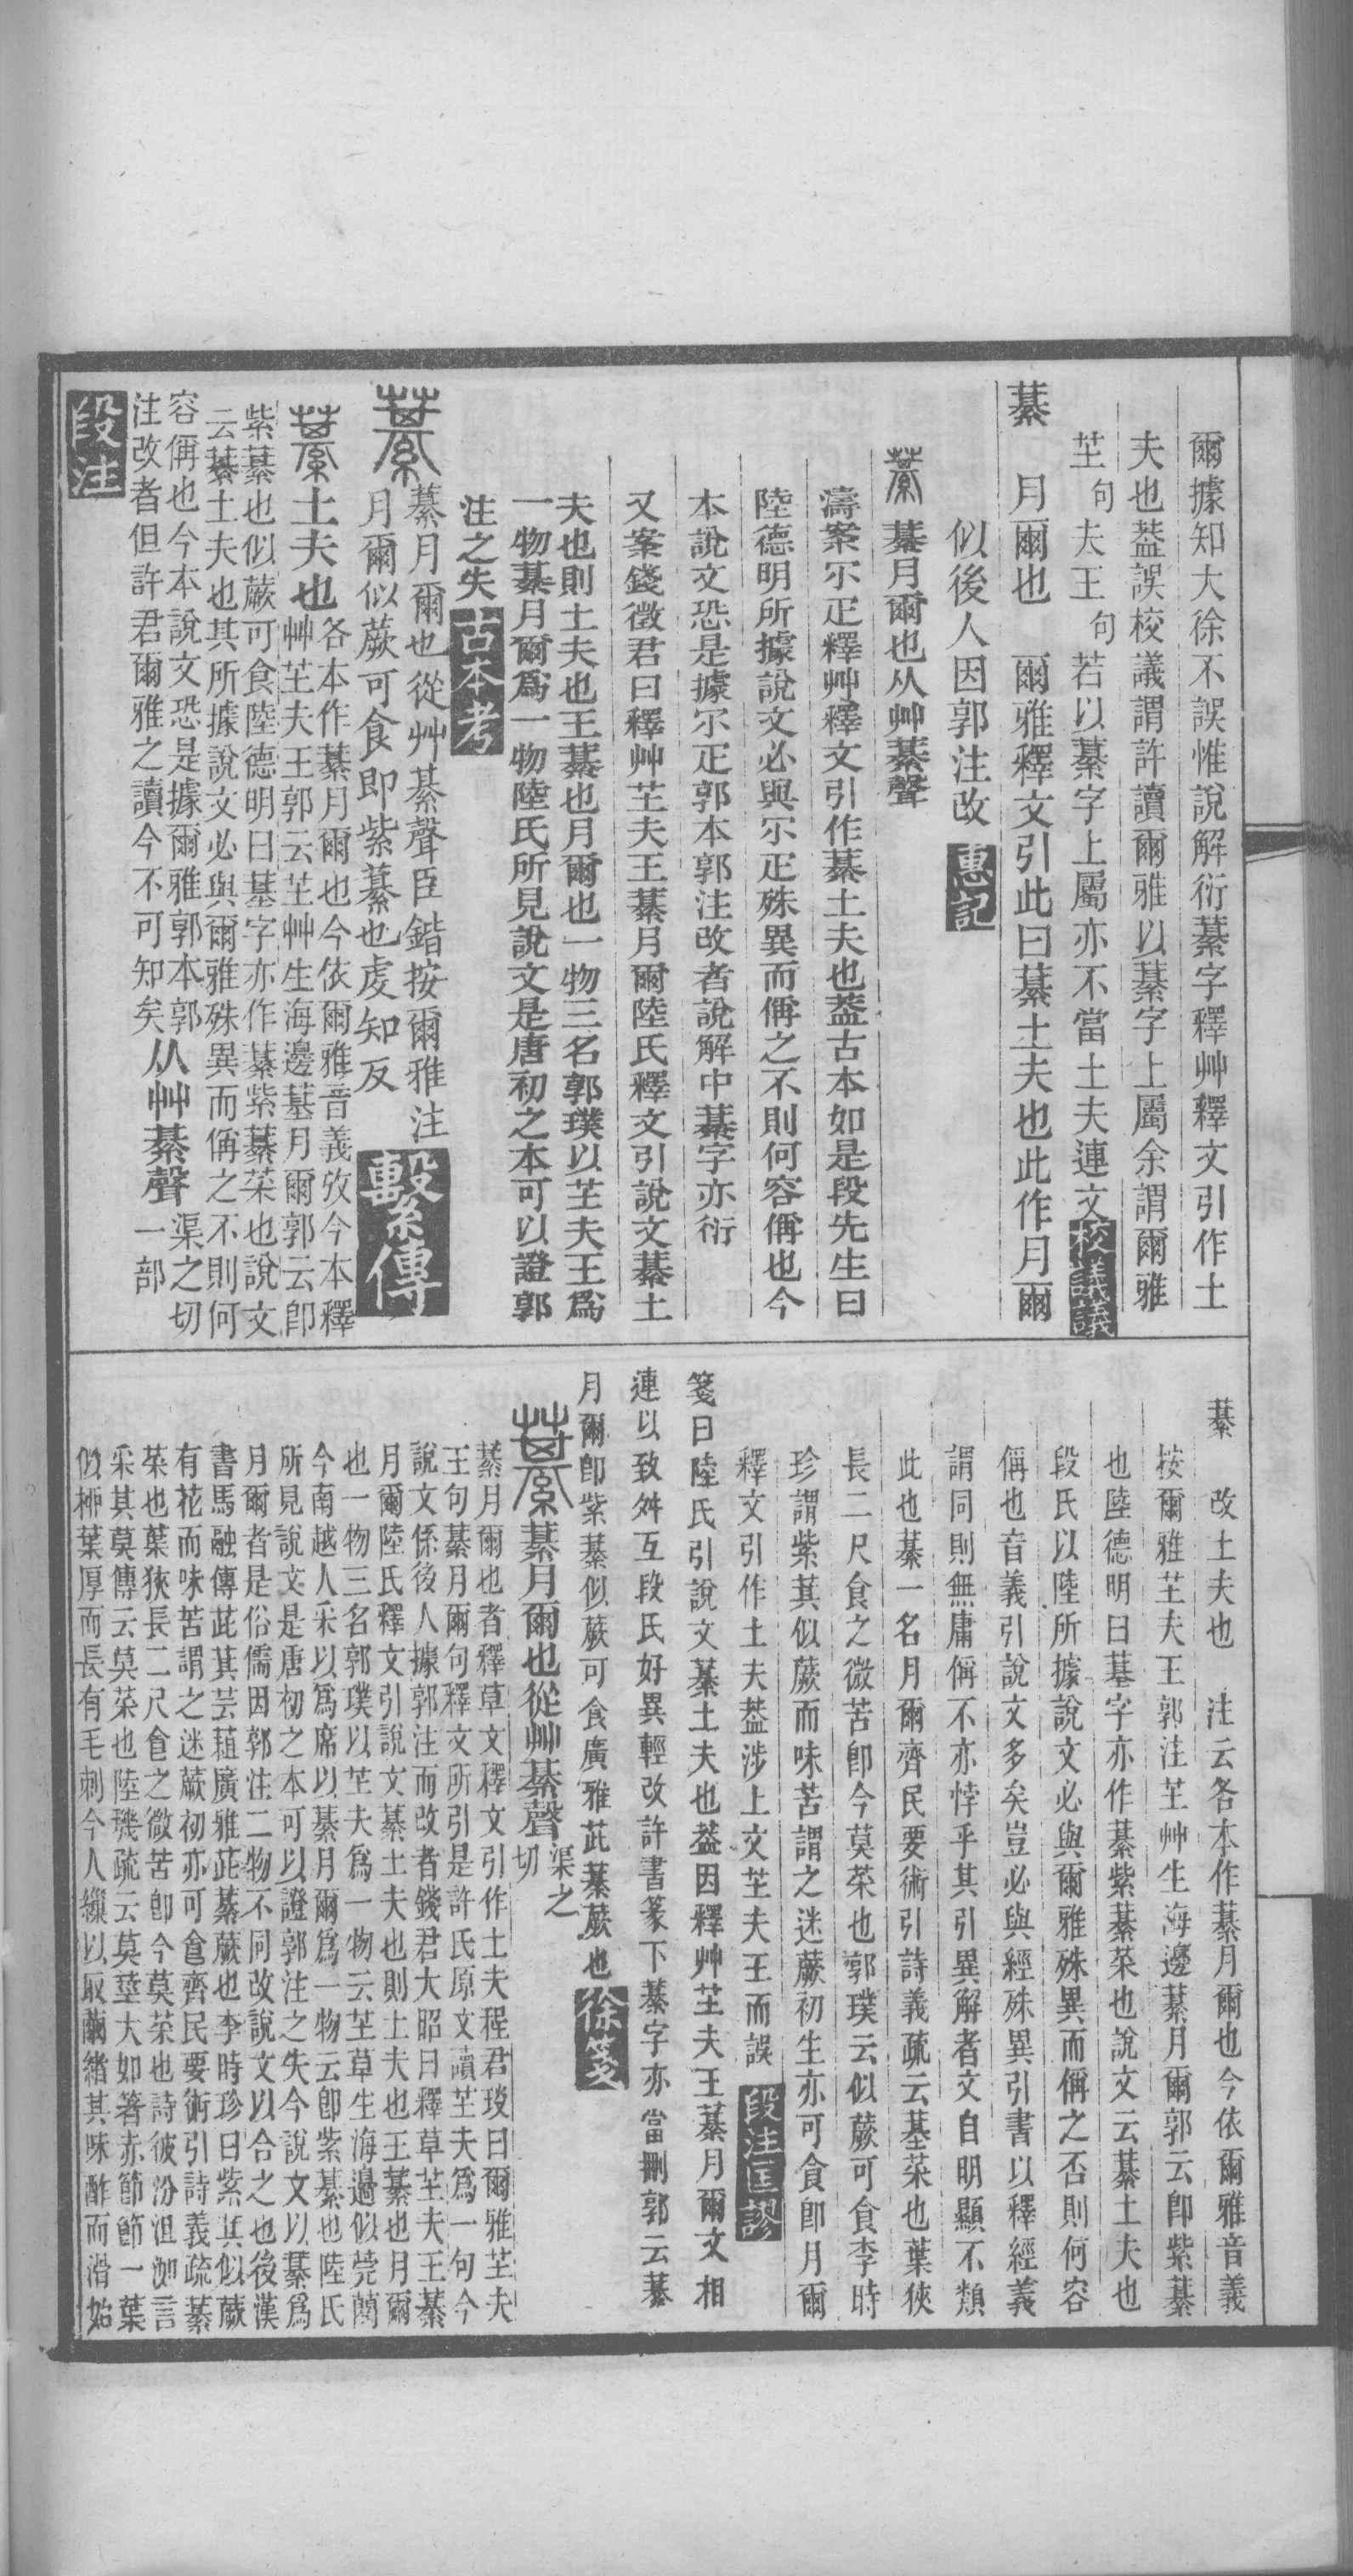 爾據知大徐不誤惟說解衍綦字釋艸釋文引作土
夫也葢誤校議謂許讀爾雅以綦字上屬余謂爾雅
芏句夫王句若以綦字上屬亦不當土夫連文校議議
綦　月爾也　爾雅釋文引此曰綦土夫也此作月爾
似後人因郭注改惠記
綦月爾也从艸綦聲
濤案尒疋釋艸釋文引作綦土夫也葢古本如是段先生曰
陸德明所據說文必與尒疋殊異而偁之不則何容偁也今
本說文恐是據尒疋郭本郭注改者說解中綦字亦衍
又案錢徵君曰釋艸芏夫王綦月爾陸氏釋文引說文綦土
夫也則土夫也王綦也月爾也一物三名郭璞以芏夫王爲
一物綦月爾爲一物陸氏所見說文是唐初之本可以證郭
注之失古本考
綦月爾也從艸綦聲臣鍇按爾雅注
月爾似蕨可食即紫綦也虔知反繫傳
土夫也各本作綦月爾也今依爾雅音義攷今本釋
艸芏夫王郭云芏艸生海邊綦月爾郭云卽
紫綦也似蕨可食陸德明曰綦字亦作綦紫綦菜也說文
云綦土夫也其所據說文必與爾雅殊異而偁之不則何
容偁也今本說文恐是據爾雅郭本郭
注改者但許君爾雅之讀今不可知矣从艸綦聲渠之切
一部
段注
綦　改土夫也　注云各本作綦月爾也今依爾雅音義
按爾雅芏夫王郭注芏艸生海邊綦月爾郭云卽紫綦
也陸德明曰綦字亦作綦紫綦菜也說文云綦土夫也
段氏以陸所據說文必與爾雅殊異而偁之否則何容
偁也音義引說文多矣豈必與經殊異引書以釋經義
謂同則無庸偁不亦悖乎其引異解者文自明顯不類
此也綦一名月爾齊民要術引詩義疏云綦菜也葉狹
長二尺食之微苦卽今莫菜也郭璞云似蕨可食李時
珍謂紫萁似蕨而味苦謂之迷蕨初生亦可食卽月爾
釋文引作土夫葢涉上文芏夫王而誤段注匡謬
箋曰陸氏引說文綦土夫也葢因釋艸芏夫王綦月爾文相
連以致舛互段氏好異輕改許書篆下綦字亦當刪郭云綦
月爾卽紫綦似蕨可食廣雅茈綦蕨也徐箋
綦月爾也從艸綦聲渠之切
綦月爾也者釋草文釋文引作土夫程君琰曰爾雅芏夫
王句綦月爾句釋文所引是許氏原文讀芏夫爲一句今
說文係後人據郭注而改者錢君大昭曰釋草芏夫王綦
月爾陸氏釋文引說文綦土夫也則土夫也王綦也月爾
也一物三名郭璞以芏夫爲一物云芏草生海邊似莞藺
今南越人采以爲席以綦月爾爲一物云卽紫綦也陸氏
所見說文是唐初之本可以證郭注之失今說文以綦爲
月爾者是俗儒因郭注二物不同改說文以合之也後漢
書馬融傳茈萁芸蒩廣雅茈綦蕨也李時珍曰紫萁似蕨
有花而味苦謂之迷蕨初亦可食齊民要術引詩義疏綦
菜也葉狹長二尺食之微苦卽今莫菜也詩彼汾沮洳言
采其莫傳云莫菜也陸璣疏云莫莖大如箸赤節節一葉
似柳葉厚而長有毛刺今人繅以取繭緒其味酢而滑始